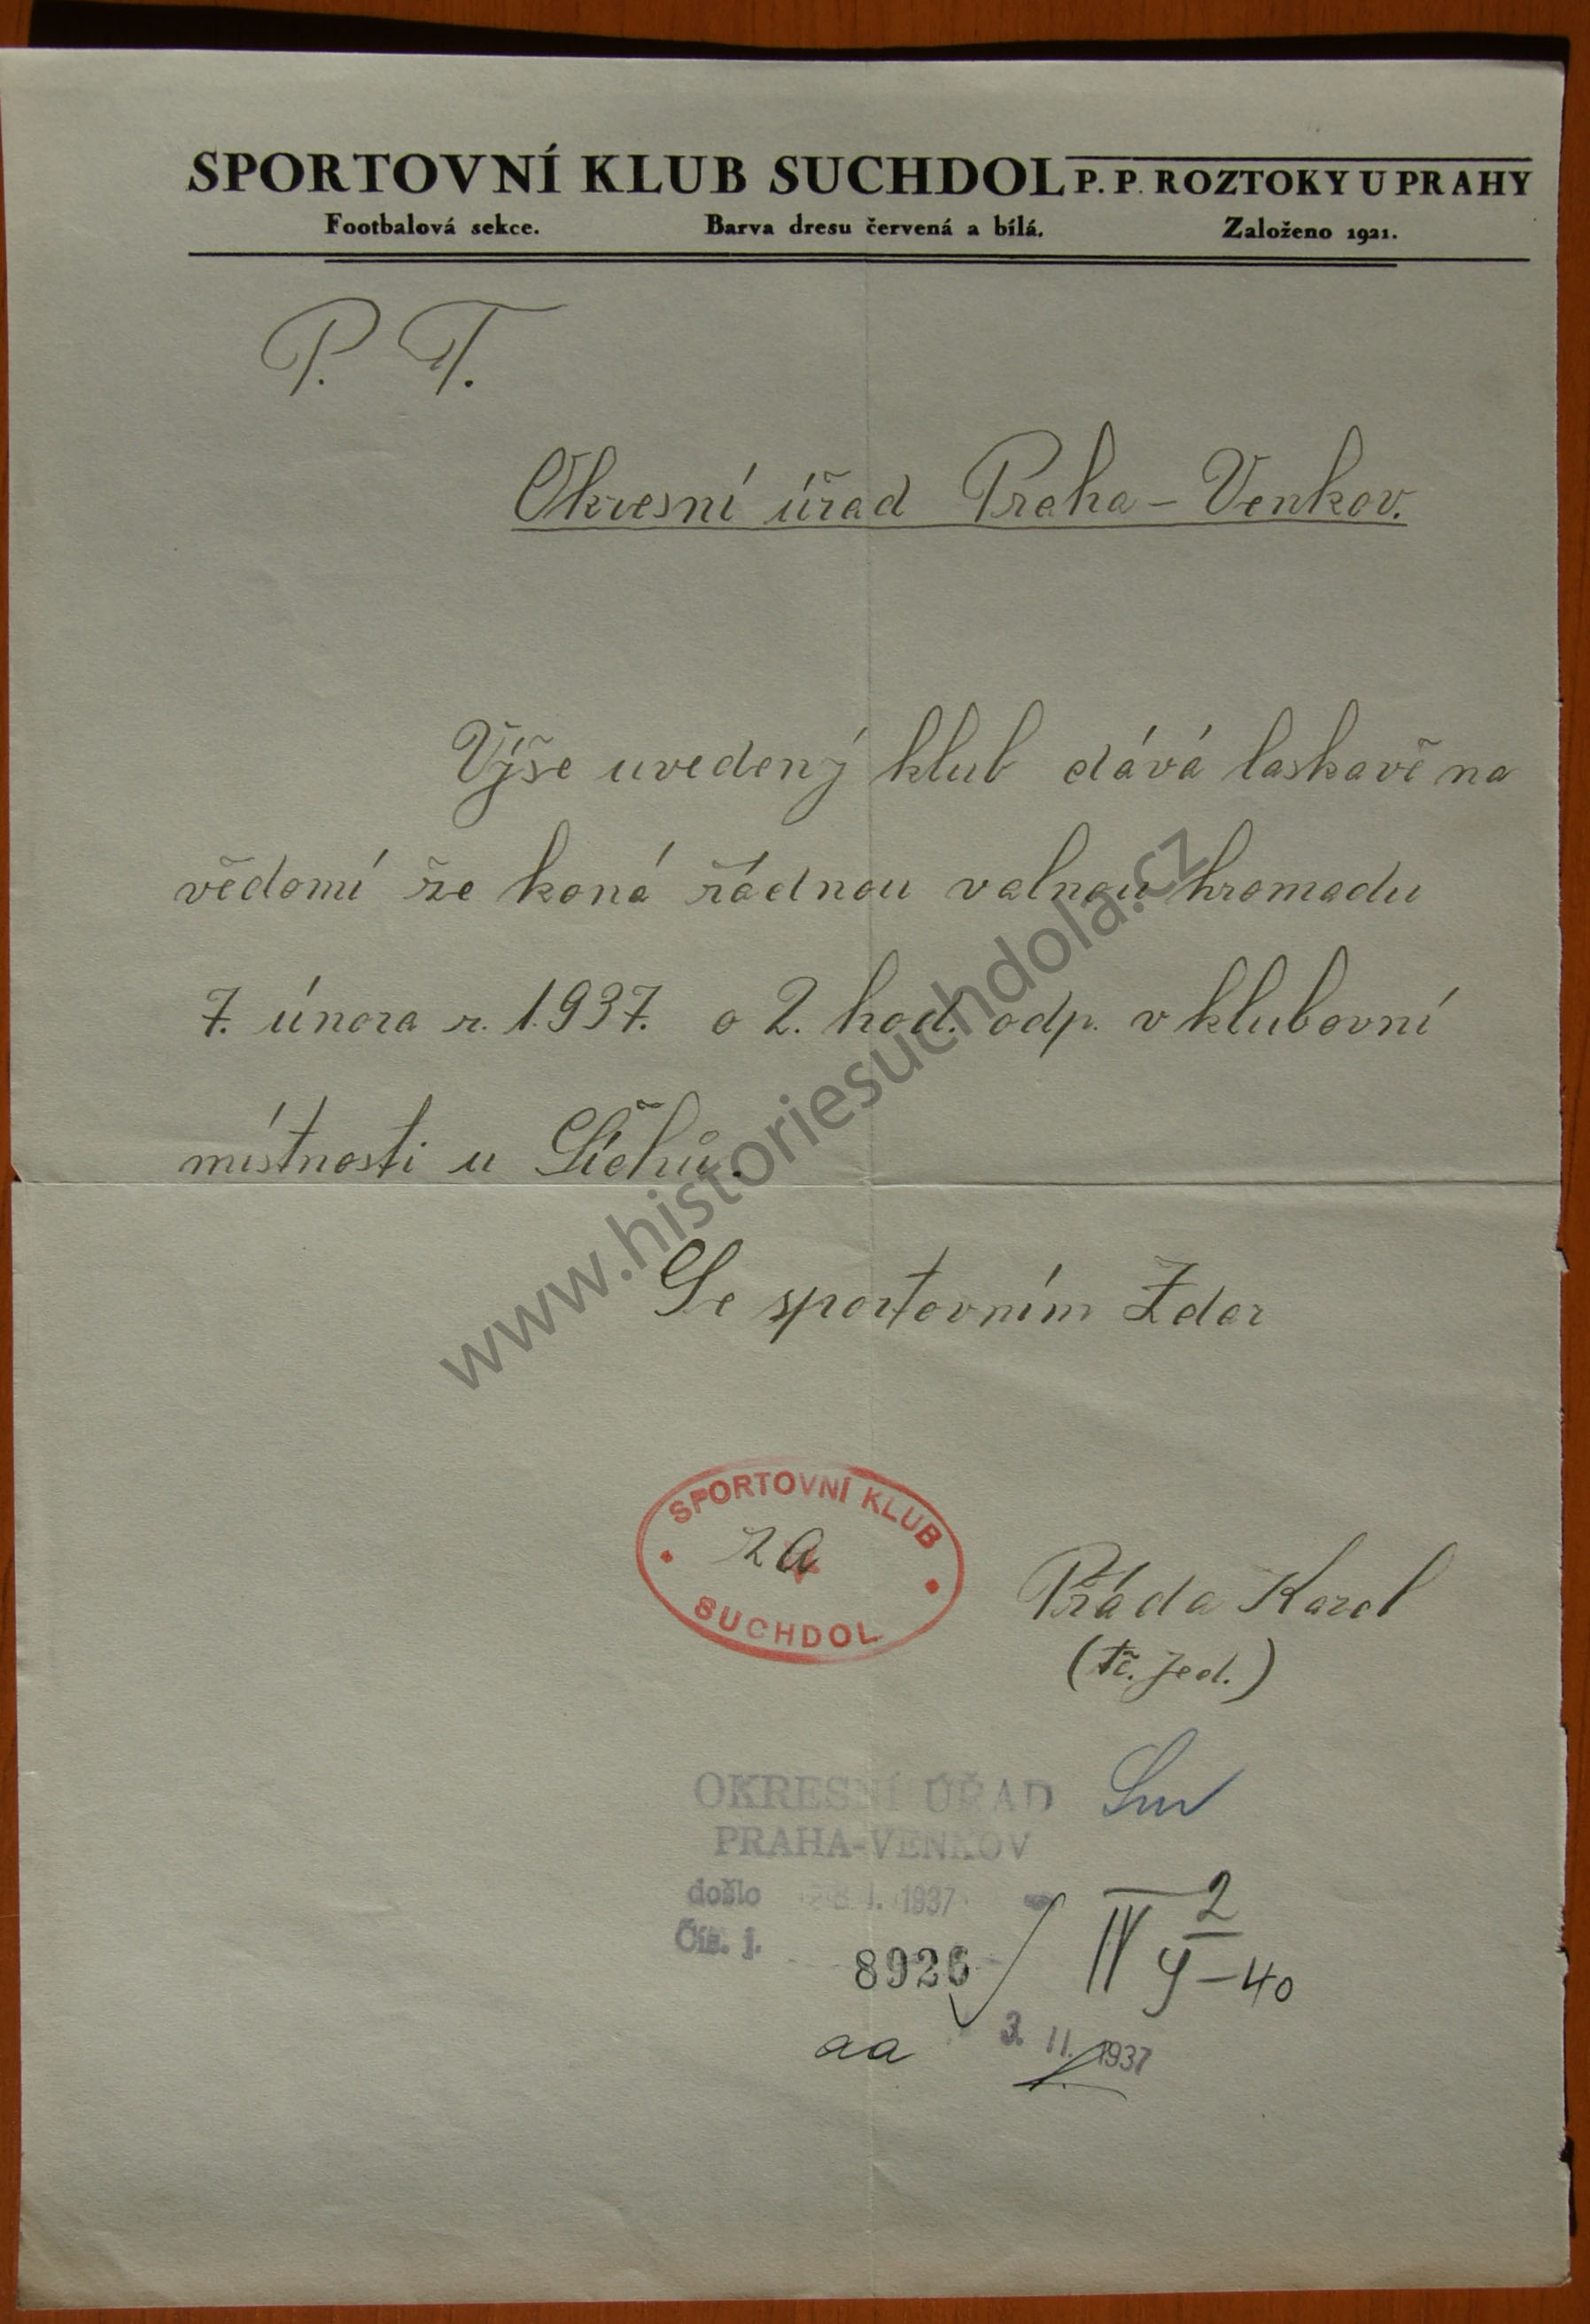 SPORTOVNÍ KLUB SUCHDOL P. P. ROZTOKY U PRAHY
Footbalová sekce. Barva dresu červená a bílá. Založeno 1921.
P. T.
Okresní úřad Praha-Venkov.
Výše uvedený klub dává laskavě na
vědomí že koná řádnou valnou hromadu
7. února r. 1937. o 2. hod. odp. v klubovní
místnosti u
Se sportovním Zdar
SPORTOVNÍ KLUB
za
SUCHDOL
Práda Karel
(tč. jed.)
OKRESNÍ ÚŘAD
PRAHA-VENKOV
došlo I. 1937
Čís. j.
8926
IV 2
-40
aa
3. II. 1937
www.historiesuchdola.cz